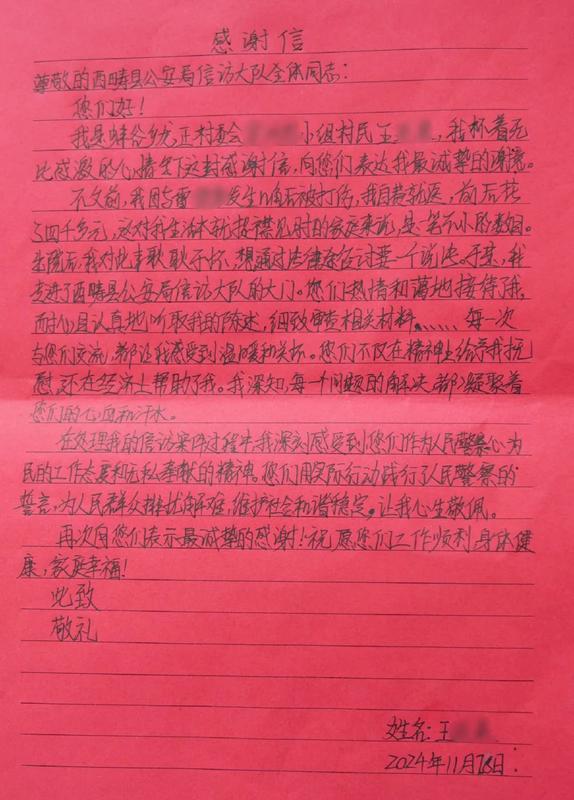 感谢信
尊敬的西畴县公安局信访大队全体同志：
您们好！
我是蚌谷乡龙正村委会小组村民王，我怀着无
比感激的心情写下这封感谢信，向您们表达我最诚挚的谢意。
不久前，我因与雷发生口角后被打伤，我自费就医，前后花
了四千多元，这对我生活本就捉襟见肘的家庭来说，是笔不小的数目。
出院后，我对此事耿耿于怀，想通过法律途径讨要一个说法。于是，我
走进了西畴县公安局信访大队的大门。您们热情和蔼地接待了我，
耐心且认真地听取我的陈述，细致审查相关材料……每一次
与您们交流，都让我感受到温暖和关怀。您们不仅在精神上给予我抚
慰，还在经济上帮助了我。我深知，每一个问题的解决都凝聚着
您们的心血和汗水。
在处理我的信访案件过程中，我深刻感受到您们作为人民警察心为
民的工作态度和无私奉献的精神。您们用实际行动践行了人民警察的
誓言，为人民群众排忧解难，维护社会和谐稳定。让我心生敬佩。
再次向您们表示最诚挚的感谢！祝愿您们工作顺利，身体健
康，家庭幸福！
此致
敬礼
姓名：王
2024年11月 日